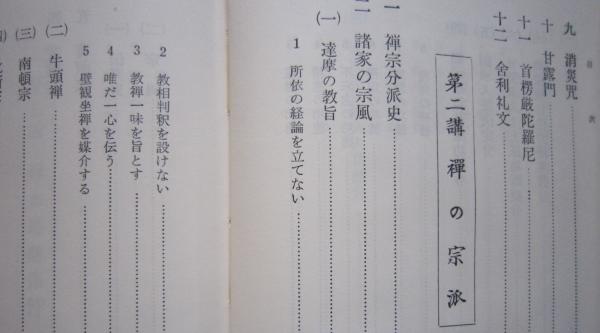 目次
九 消災咒
十 甘露門
十一 首楞厳陀羅尼
十二 舎利礼文
第二講 禪の宗派
一 禅宗分派史
二 諸家の宗風
(一) 達摩の教旨
1 所依の経論を立てない
2 教相判釈を設けない
3 教禅一味を旨とす
4 唯だ一心を伝う
5 壁観坐禅を媒介する
(二) 牛頭禅
(三) 南頓宗